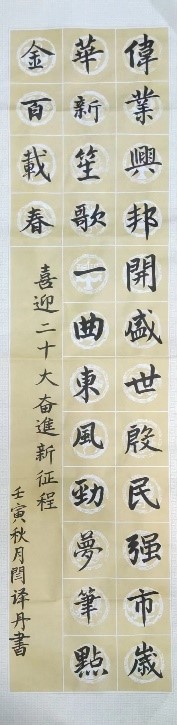 偉業興邦開盛世殷民强市歲
華新笙歌一曲東風勁夢筆點
金百載春
喜迎二十大奋進新征程
壬寅秋月闫译丹書